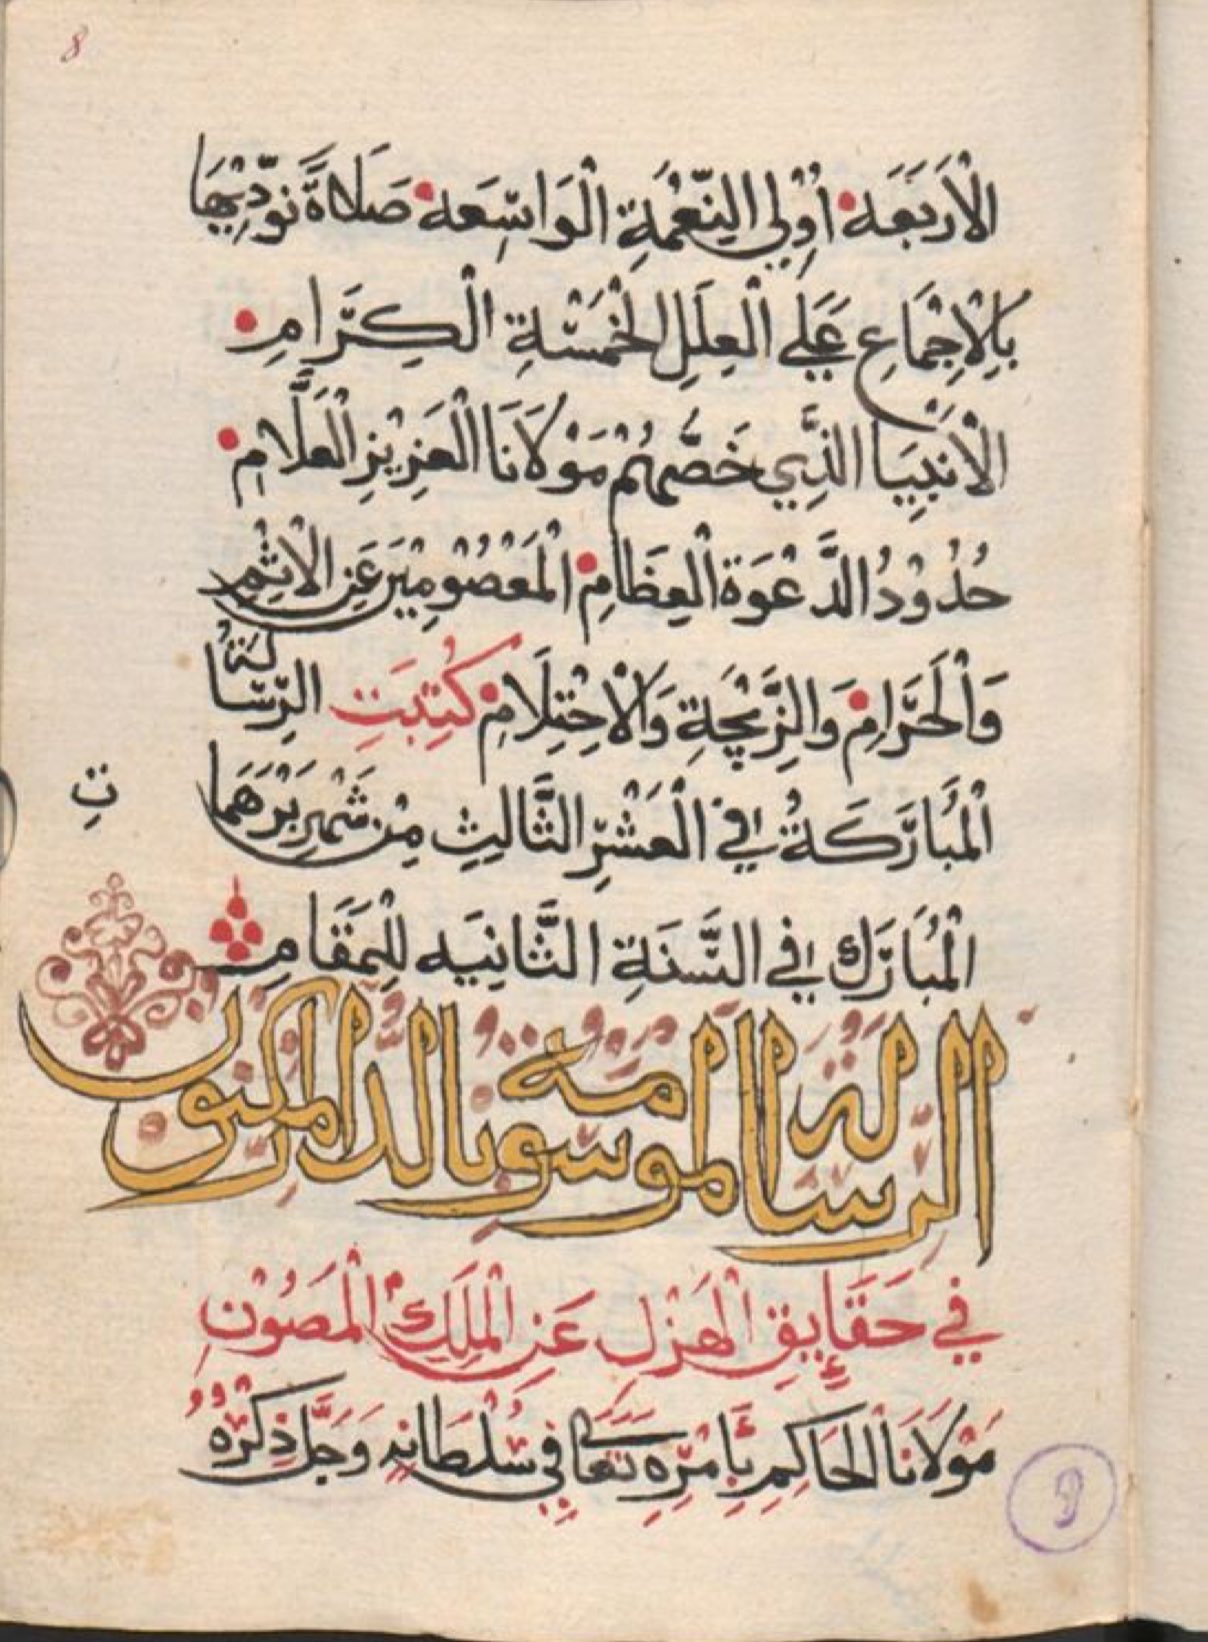 8
الْاَرَبَعَه اُوْلِي النِّعْمَةِ الْوَاسِعَه صَلاةً نوَدِّيْهَا
بِالْاِجْمَاعِ عَلي الْعِلَلِ الخْمَسْةِ الْكِرَامِ
الْاَنبِيَا الذِّي خَصَّهُمْ مَوْلَانَا الْعَزِيْزِ الْعَلَّامِ
حُدُوْدُ الدَّعْوَةِ الْعِظَامِ الْمَعْصُوْمِيْنَ عَنِ الْاثْمِ
وَالْحَرَامِ وَالزِّيْجَةِ وَالْاحْتِلَامِ كُتِبَتِ الرِّسَالَةُ
الْمُبَارَكَةُ فِي الْعَشْرِ الثَّالِثِ مِنْ شَهْرِ بَرْهَمَا
تِ
الْمُبَارَك فِي السَّنَةِ الثَّانِيَه لِلْمَقَامِ
الرسالة الموسومة بالدر المكنون
فِي حَقَايِقِ الْهَزْلِ عَنِ الْمَلِكْ الْمَصُوْنِ
مَوْلَانَا الْحَاكِمِ بِاَمْرِهِ تَعَالَى فِي سُلْطَانِهِ وَجَلَّ ذِكْرُهُ
9